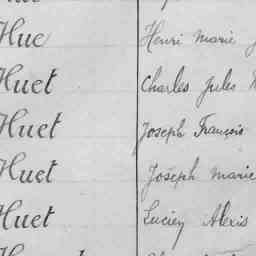 Hue Henri Marie
Huet Charles Jules
Huet Joseph François
Huet Joseph Marie
Huet Lucien Alexis